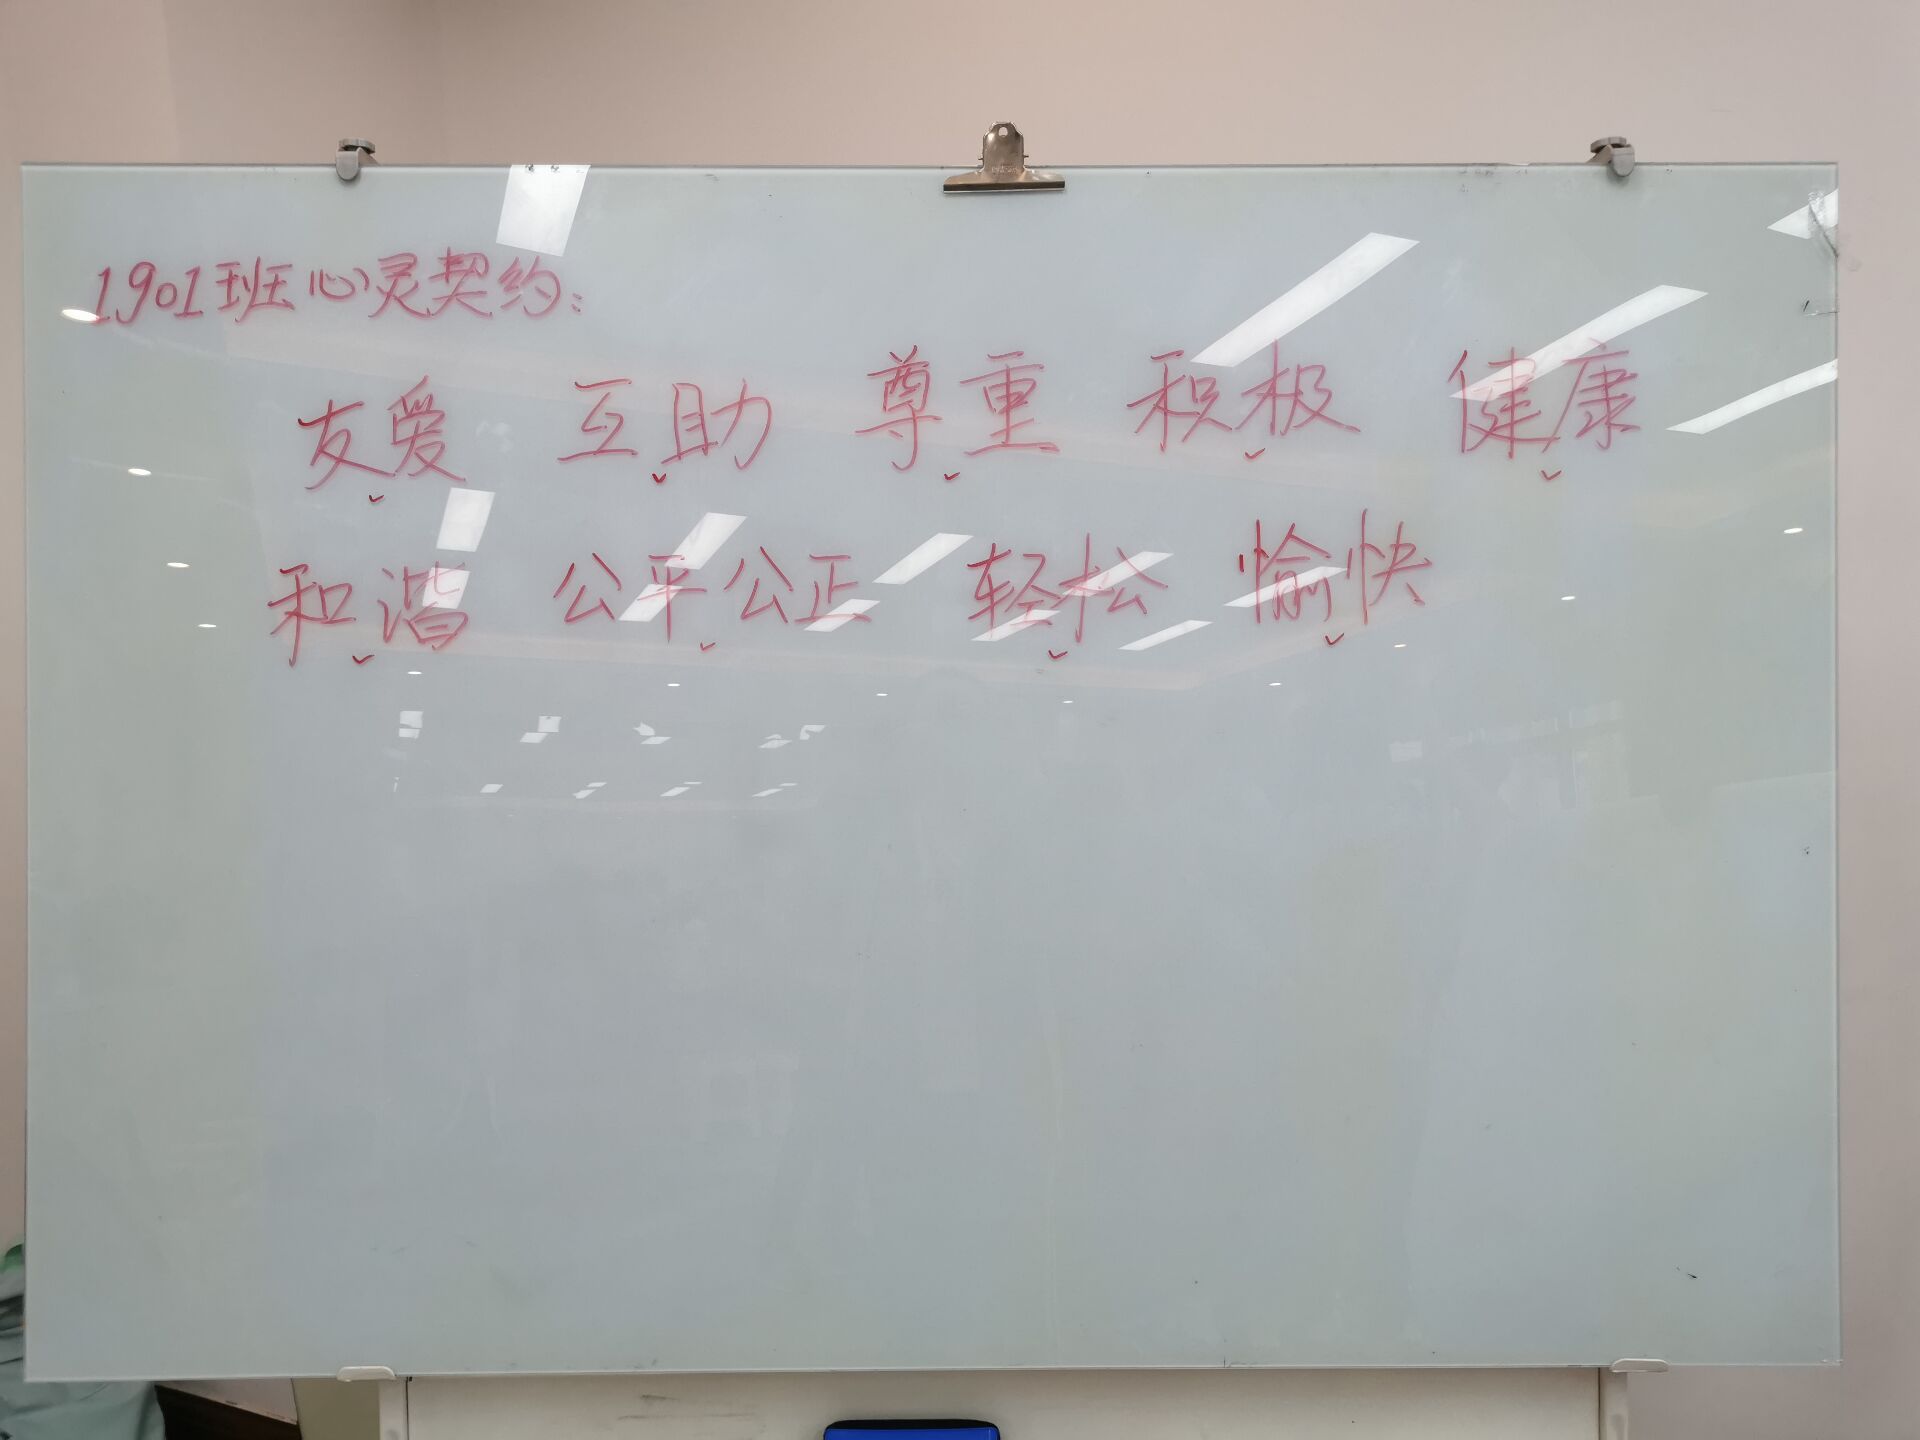 1901班心灵契约:
友爱 互助 尊重 积极 健康
和谐 公平公正 轻松 愉快